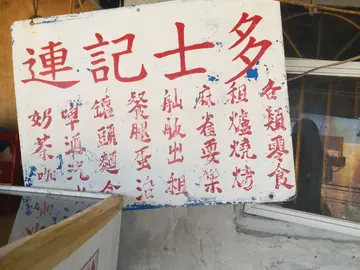 連記士多
各類零食
租爐燒烤
麻雀耍樂
舢舨出租
餐腿蛋治
罐頭麵食
啤酒汽
奶茶咖